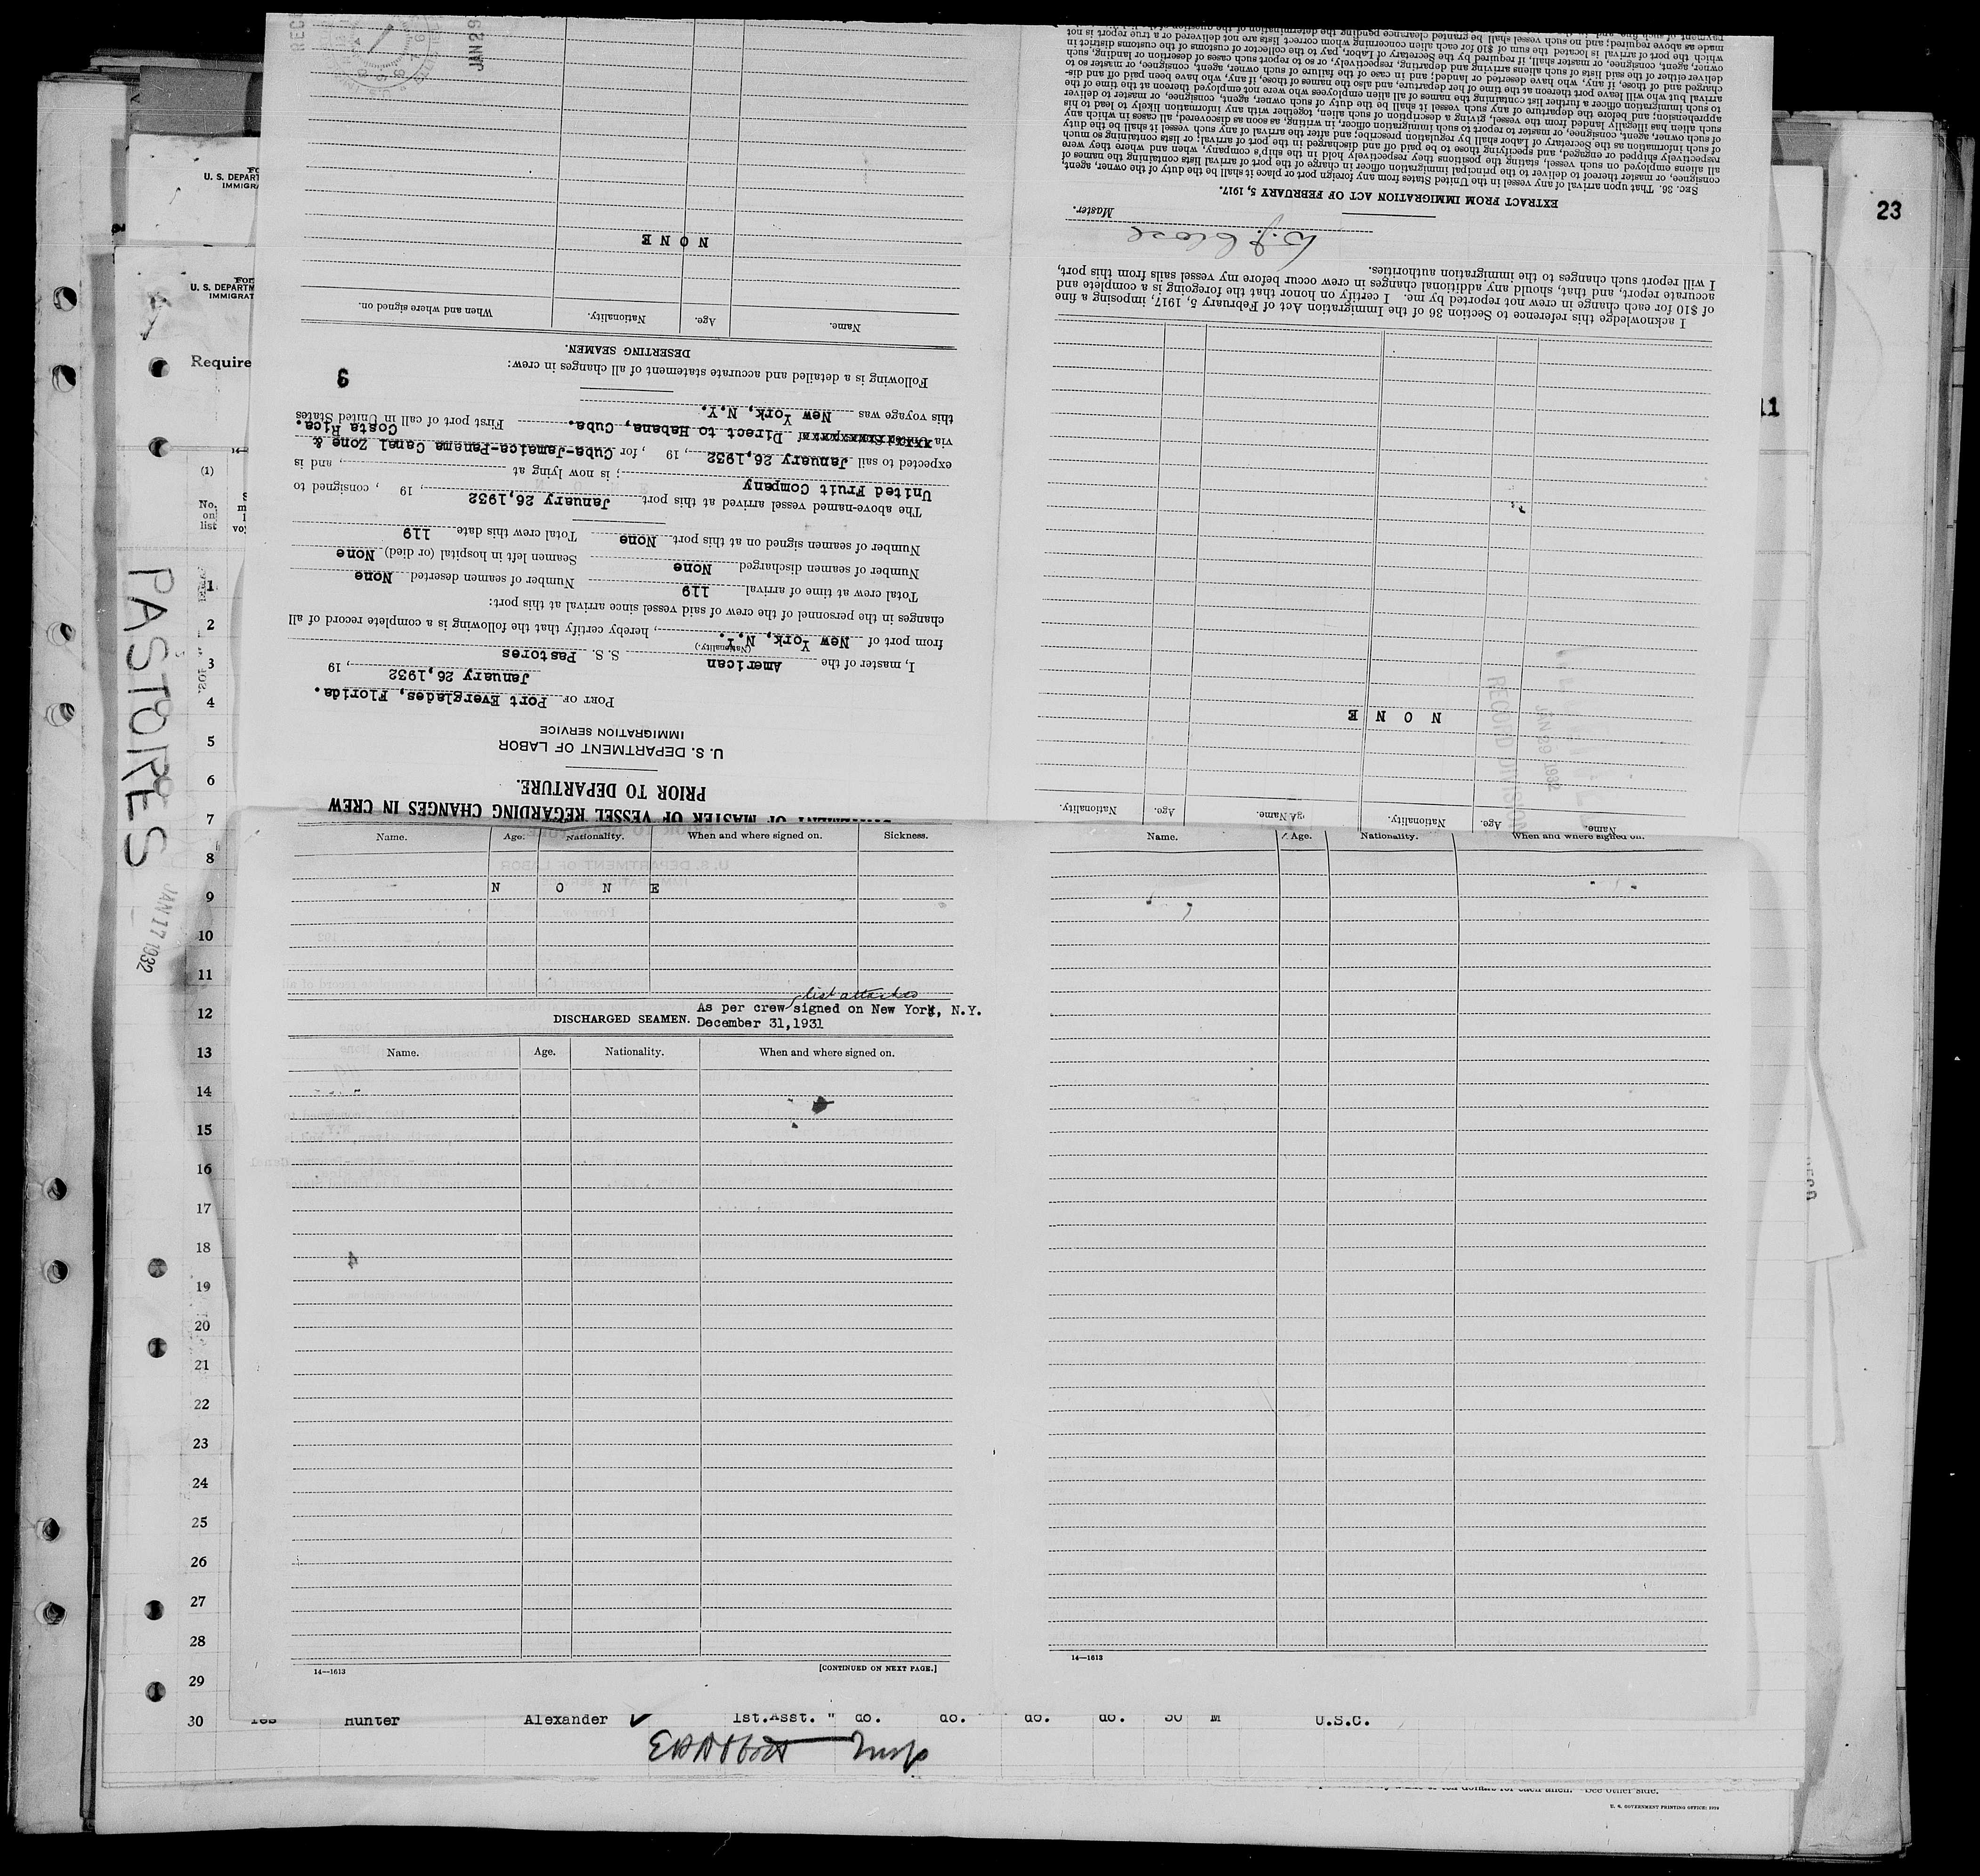 23
11
FOR
U. S. DEPART
IMMIGRA
FOR
U. S. DEPARTM
IMMIGRAT
Require
(1)
No. on list
PASTORES
JAN 17 1932
1
2
3
4
5
6
7
8
9
10
11
12
13
14
15
16
17
18
19
20
21
22
23
24
25
26
27
28
29
30
STATEMENT OF MASTER OF VESSEL REGARDING CHANGES IN CREW
PRIOR TO DEPARTURE.
U. S. DEPARTMENT OF LABOR
IMMIGRATION SERVICE
PORT OF Port Everglades, Florida.
January 26,1932, 19
I, master of the American S. S. Pastores
(Nationality.)
from port of New York, N.Y., hereby certify that the following is a complete record of all
changes in the personnel of the crew of said vessel since arrival at this port:
Total crew at time of arrival 119 Number of seamen deserted None
Number of seamen discharged None Seamen left in hospital (or died) None
Number of seamen signed on at this port None Total crew this date 119
The above-named vessel arrived at this port January 26,1932, 19 , consigned to
United Fruit Company; is now lying at , and is
expected to sail January 26,1932, 19 , for Cuba-Jamaica-Panama Canal Zone &
Costa Rica.
via United States ports of Direct to Habana, Cuba. First port of call in United States
this voyage was New York, N.Y.
9
Following is a detailed and accurate statement of all changes in crew:
DESERTING SEAMEN.
Name. Age. Nationality. When and where signed on.
NONE
JAN 29
REC
Name. Age. Nationality. Name. Age. Nationality.
N O N E
RECORD DIVISION
JAN 29 1932
I acknowledge this reference to Section 36 of the Immigration Act of February 5, 1917, imposing a fine
of $10 for each change in crew not reported by me. I certify on honor that the foregoing is a complete and
accurate report, and that, should any additional changes in crew occur before my vessel sails from this port,
I will report such changes to the immigration authorities.
Master.
EXTRACT FROM IMMIGRATION ACT OF FEBRUARY 5, 1917.
SEC. 36. That upon arrival of any vessel in the United States from any foreign port or place it shall be the duty of the owner, agent,
consignee, or master thereof to deliver to the principal immigration officer in charge of the port of arrival lists containing the names of
all aliens employed on such vessel, stating the positions they respectively hold in the ship's company, when and where they were
respectively shipped or engaged, and specifying those to be paid off and discharged in the port of arrival; or lists containing so much
of such information as the Secretary of Labor shall by regulation prescribe; and after the arrival of any such vessel it shall be the duty
of such owner, agent, consignee, or master to report to such immigration officer, in writing, as soon as discovered, all cases in which any
such alien has illegally landed from the vessel, giving a description of such alien, together with any information likely to lead to his
apprehension; and before the departure of any such vessel it shall be the duty of such owner, agent, consignee, or master to deliver
to such immigration officer a further list containing the names of all alien employees who were not employed thereon at the time of the
arrival but who will leave port thereon at the time of her departure, and also the names of those, if any, who have been paid off and dis-
charged and of those, if any, who have deserted or landed; and in case of the failure of such owner, agent, consignee, or master so to
deliver either of the said lists of such aliens arriving and departing, respectively, or so to report such cases of desertion or landing, such
owner, agent, consignee, or master shall, if required by the Secretary of Labor, pay to the collector of customs of the customs district in
which the port of arrival is located the sum of $10 for each alien concerning whom correct lists are not delivered or a true report is not
made as above required; and no such vessel shall be granted clearance pending the determination of the question of the
Name. Age. Nationality. When and where signed on. Sickness.
N O N E
list attached
As per crew signed on New York, N.Y.
DISCHARGED SEAMEN. December 31,1931
Name. Age. Nationality. When and where signed on.
4
14—1613 [CONTINUED ON NEXT PAGE.]
Name. Age. Nationality. When and where signed on.
14—1613
Hunter Alexander 1st.Asst. " do. do. do. do. 30 M U.S.C.
for each alien. See other side.
U. S. GOVERNMENT PRINTING OFFICE: 1929